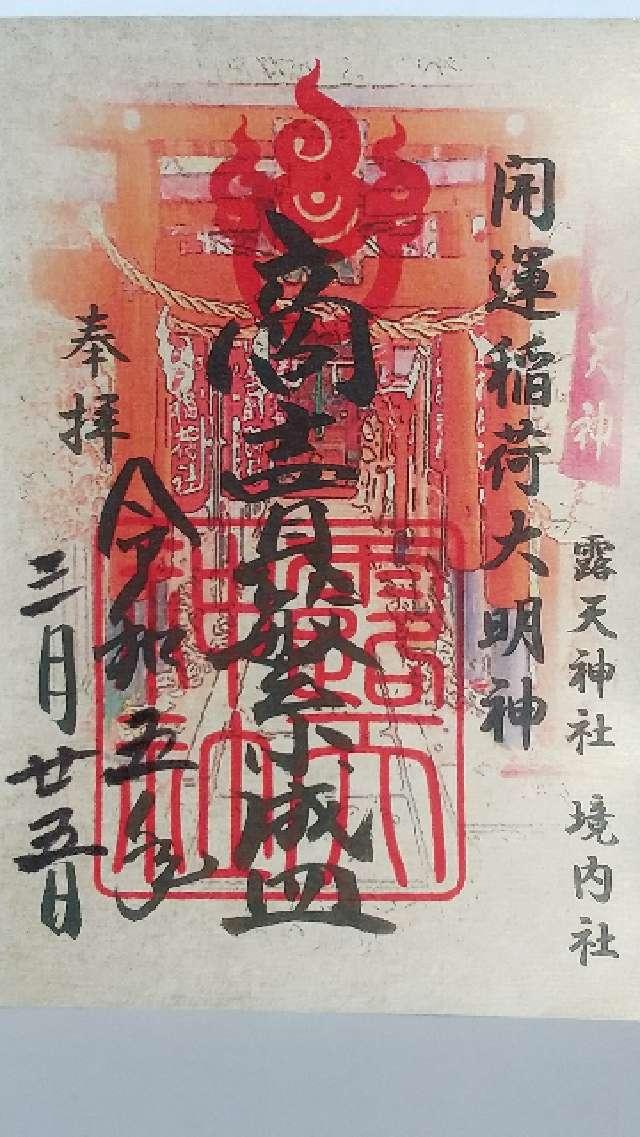 露天神社 境内社
開運稲荷大明神
商売繁盛
奉拝
令和五年
三月廿五日
天神
露天神社